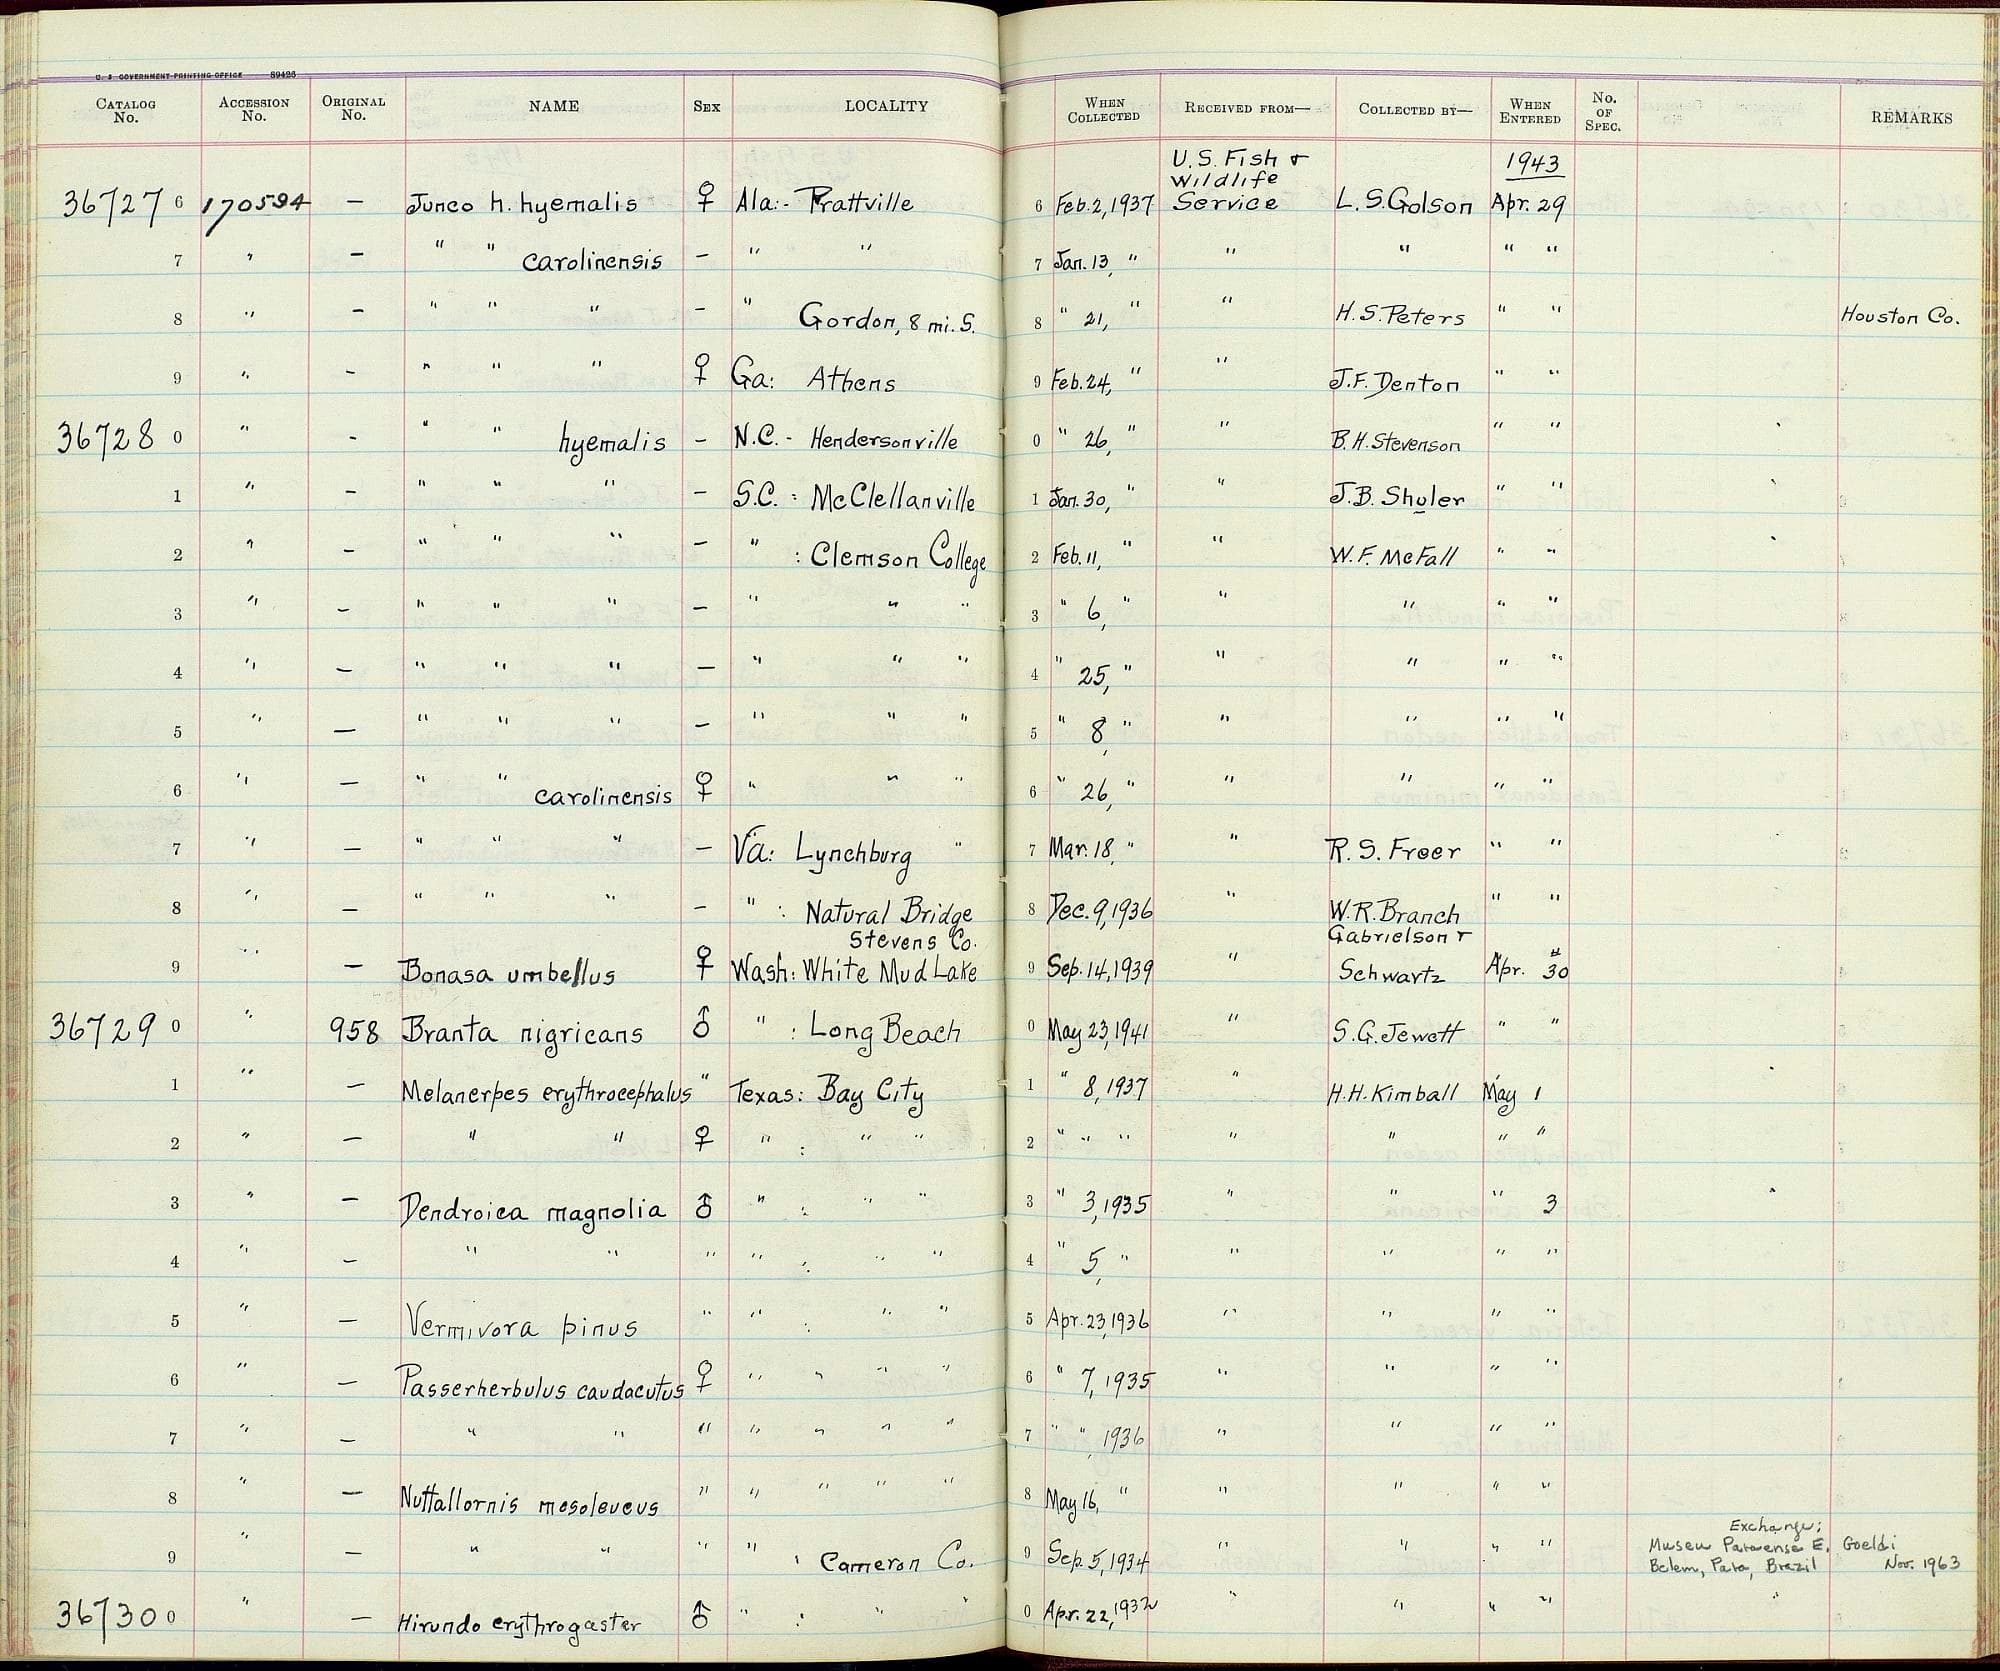 U. S. GOVERNMENT PRINTING OFFICE 89426
CATALOG No. ACCESSION No. ORIGINAL No. NAME SEX LOCALITY WHEN COLLECTED RECEIVED FROM— COLLECTED BY— WHEN ENTERED No. OF SPEC. REMARKS
36727 6 170594 — Junco h. hyemalis ♀ Ala:- Prattville 6 Feb. 2, 1937 U.S. Fish & Wildlife Service L.S. Golson 1943 Apr. 29
7 " — " " carolinensis — " " 7 Jan. 13, " " " " "
8 " — " " " — " Gordon, 8 mi. S. 8 " 21, " " H.S. Peters " " Houston Co.
9 " — " " " ♀ Ga: Athens 9 Feb. 24, " " J.F. Denton " "
36728 0 " - " " hyemalis — N.C.- Hendersonville 0 " 26, " " B.H. Stevenson " "
1 " — " " " — S.C. : McClellanville 1 Jan. 30, " " J.B. Shuler " "
2 " — " " " — " : Clemson College 2 Feb. 11, " " W.F. McFall " "
3 " — " " " — " " " 3 " 6, " " " " "
4 " — " " " — " " " 4 " 25, " " " " "
5 " — " " " — " " " 5 " 8, " " " " "
6 " — " " carolinensis ♀ " " " 6 " 26, " " " " "
7 " — " " " — Va: Lynchburg " 7 Mar. 18, " " R.S. Freer " "
8 " — " " " — " : Natural Bridge 8 Dec. 9, 1936 " W.R. Branch " "
9 " — Bonasa umbellus ♀ Wash: Stevens Co. White Mud Lake 9 Sep. 14, 1939 " Gabrielson & Schwartz Apr. 30
36729 0 " 958 Branta nigricans ♂ " : Long Beach 0 May 23, 1941 " S.G. Jewett " "
1 " — Melanerpes erythrocephalus " Texas: Bay City 1 " 8, 1937 " H.H. Kimball May 1
2 " — " " ♀ " : " " 2 " " " " " " "
3 " — Dendroica magnolia ♂ " : " " 3 " 3, 1935 " " " 3
4 " — " " " " : " " 4 " 5, " " " " "
5 " — Vermivora pinus " " : " " 5 Apr. 23, 1936 " " " "
6 " — Passerherbulus caudacutus ♀ " " " " 6 " 7, 1935 " " " "
7 " — " " " " " " " 7 " ", 1936 " " " "
8 " — Nuttallornis mesoleucus " " " " " 8 May 16, " " " " "
9 " — " " " " : Cameron Co. 9 Sep. 5, 1934 " " " " Exchange; Museu Paraense E. Goeldi Belem, Para, Brazil Nov. 1963
36730 0 " — Hirundo erythrogaster ♂ " : " " 0 Apr. 22, 1932 " " " "